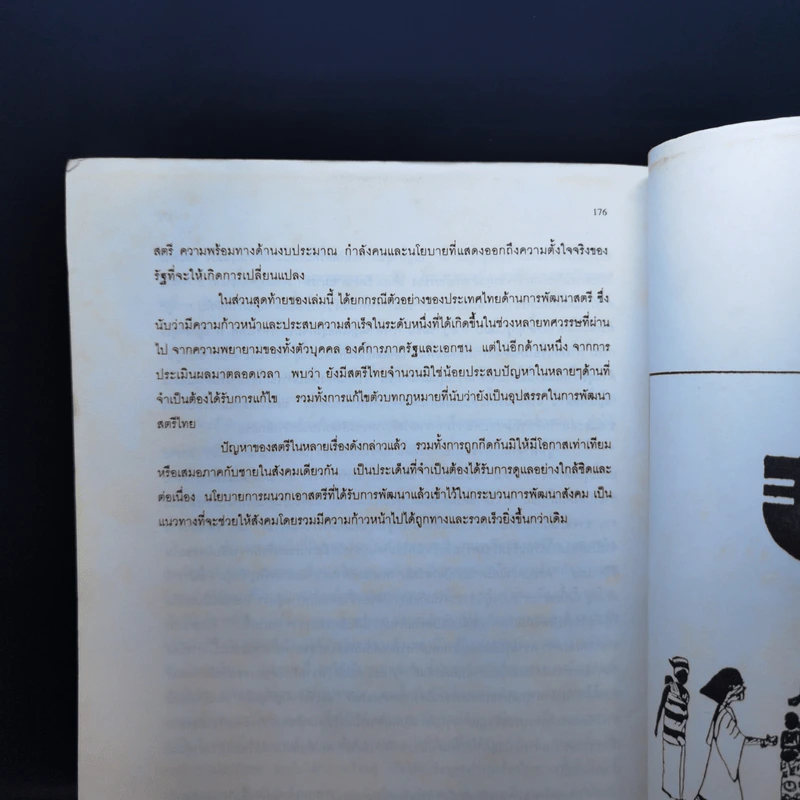 176
สตรี ความพร้อมทางด้านงบประมาณ กำลังคนและนโยบายที่แสดงออกถึงความตั้งใจจริงของ
รัฐที่จะให้เกิดการเปลี่ยนแปลง
ในส่วนสุดท้ายของเล่มนี้ ได้ยกกรณีตัวอย่างของประเทศไทยด้านการพัฒนาสตรี ซึ่ง
นับว่ามีความก้าวหน้าและประสบความสำเร็จในระดับหนึ่งที่ได้เกิดขึ้นในช่วงหลายทศวรรษที่ผ่าน
ไป จากความพยายามของทั้งตัวบุคคล องค์การภาครัฐและเอกชน แต่ในอีกด้านหนึ่ง จากการ
ประเมินผลมาตลอดเวลา พบว่า ยังมีสตรีไทยจำนวนมิใช่น้อยประสบปัญหาในหลายๆด้านที่
จำเป็นต้องได้รับการแก้ไข รวมทั้งการแก้ไขตัวบทกฎหมายที่นับว่ายังเป็นอุปสรรคในการพัฒนา
สตรีไทย
ปัญหาของสตรีในหลายเรื่องดังกล่าวแล้ว รวมทั้งการถูกกีดกันมิให้มีโอกาสเท่าเทียม
หรือเสมอภาคกับชายในสังคมเดียวกัน เป็นประเด็นที่จำเป็นต้องได้รับการดูแลอย่างใกล้ชิดและ
ต่อเนื่อง นโยบายการผนวกเอาสตรีที่ได้รับการพัฒนาแล้วเข้าไว้ในกระบวนการพัฒนาสังคม เป็น
แนวทางที่จะช่วยให้สังคมโดยรวมมีความก้าวหน้าไปได้ถูกทางและรวดเร็วยิ่งขึ้นกว่าเดิม